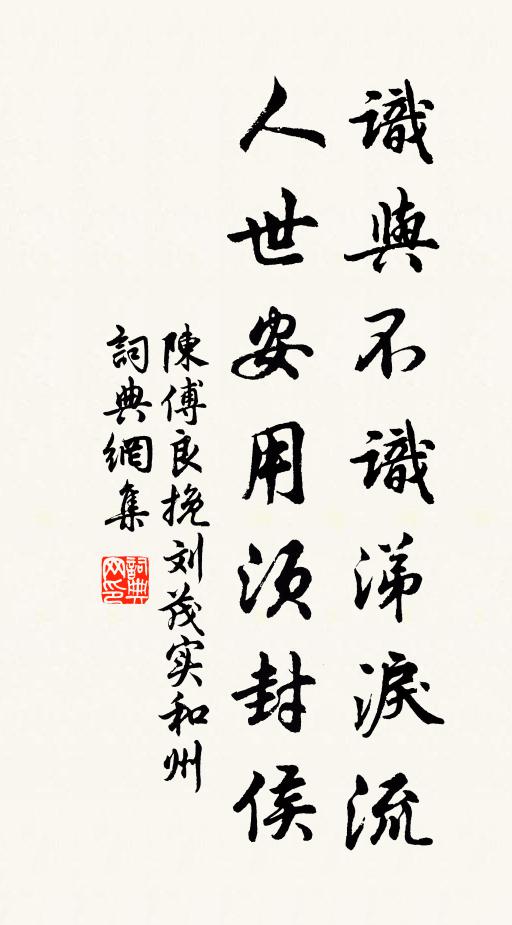 識與不識涕淚流
人世安用須封侯
陳傅良挽刘茂实和州
詞典網集
詞典网印